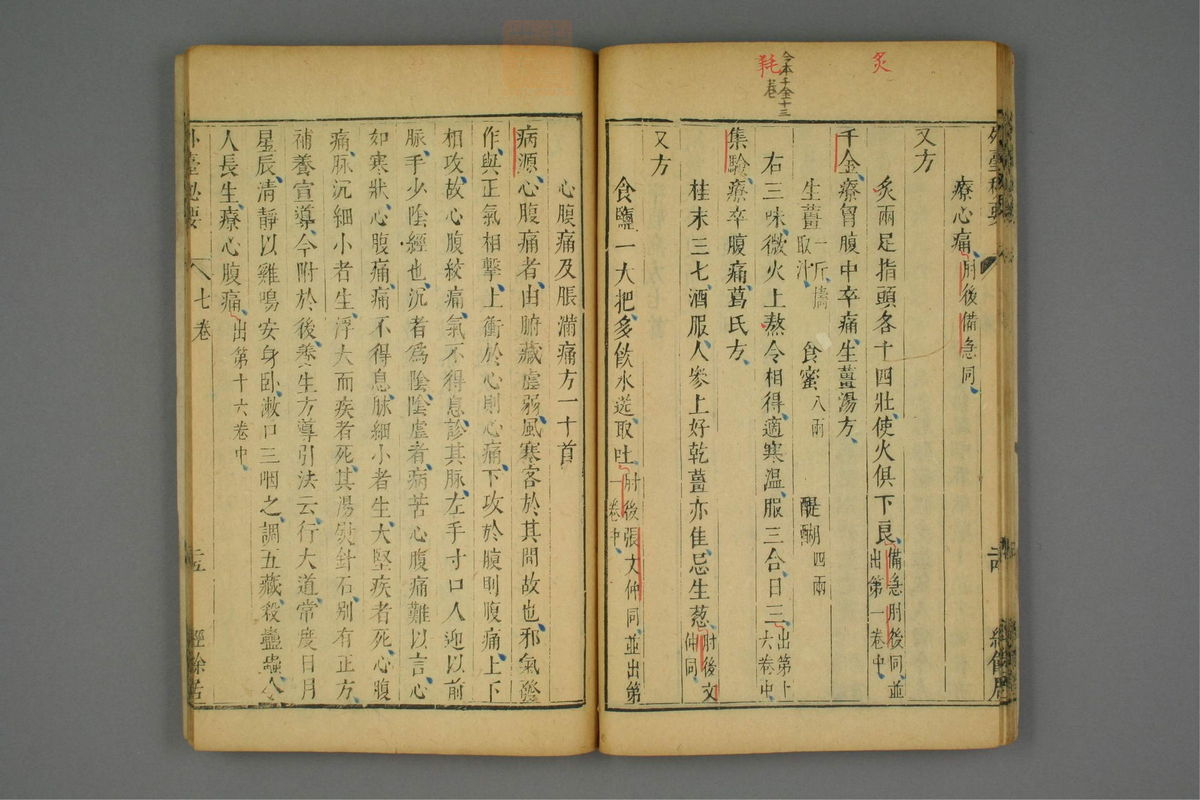 炙
今本千金十三
卷
耗
療心痛肘後備急同
又方
炙兩足指頭各十四壯使火俱下良備急肘後同並出第一卷中
千金療胷腹中卒痛生薑湯方
生薑一斤擣取汁 食蜜八兩 醍醐四兩
右三味微火上熬令相得適寒温服三合日三出第十六卷中
集驗療卒腹痛葛氏方
桂末三七酒服人參上好乾薑亦佳忌生葱肘後文仲同
又方
食鹽一大把多飲水送取吐肘後張文仲同並出第一卷中
心腹痛及脹滿痛方一十首
病源心腹痛者由腑藏虛弱風寒客於其間故也邪氣發
作與正氣相擊上衝於心則心痛下攻於腹則腹痛上下
相攻故心腹絞痛氣不得息診其脉左手寸口人迎以前
脉手少陰經也沉者爲陰陰虛者病苦心腹痛難以言心
如寒狀心腹痛痛不得息脉細小者生大堅疾者死心腹
痛脉沉細小者生浮大而疾者死其湯熨針石别有正方
補養宣導今附於後養生方導引法云行大道常度日月
星辰清靜以雞鳴安身卧漱口三咽之調五藏殺蠱蟲令
人長生療心腹痛出第十六卷中
外臺祕要
七卷
二五
經餘居